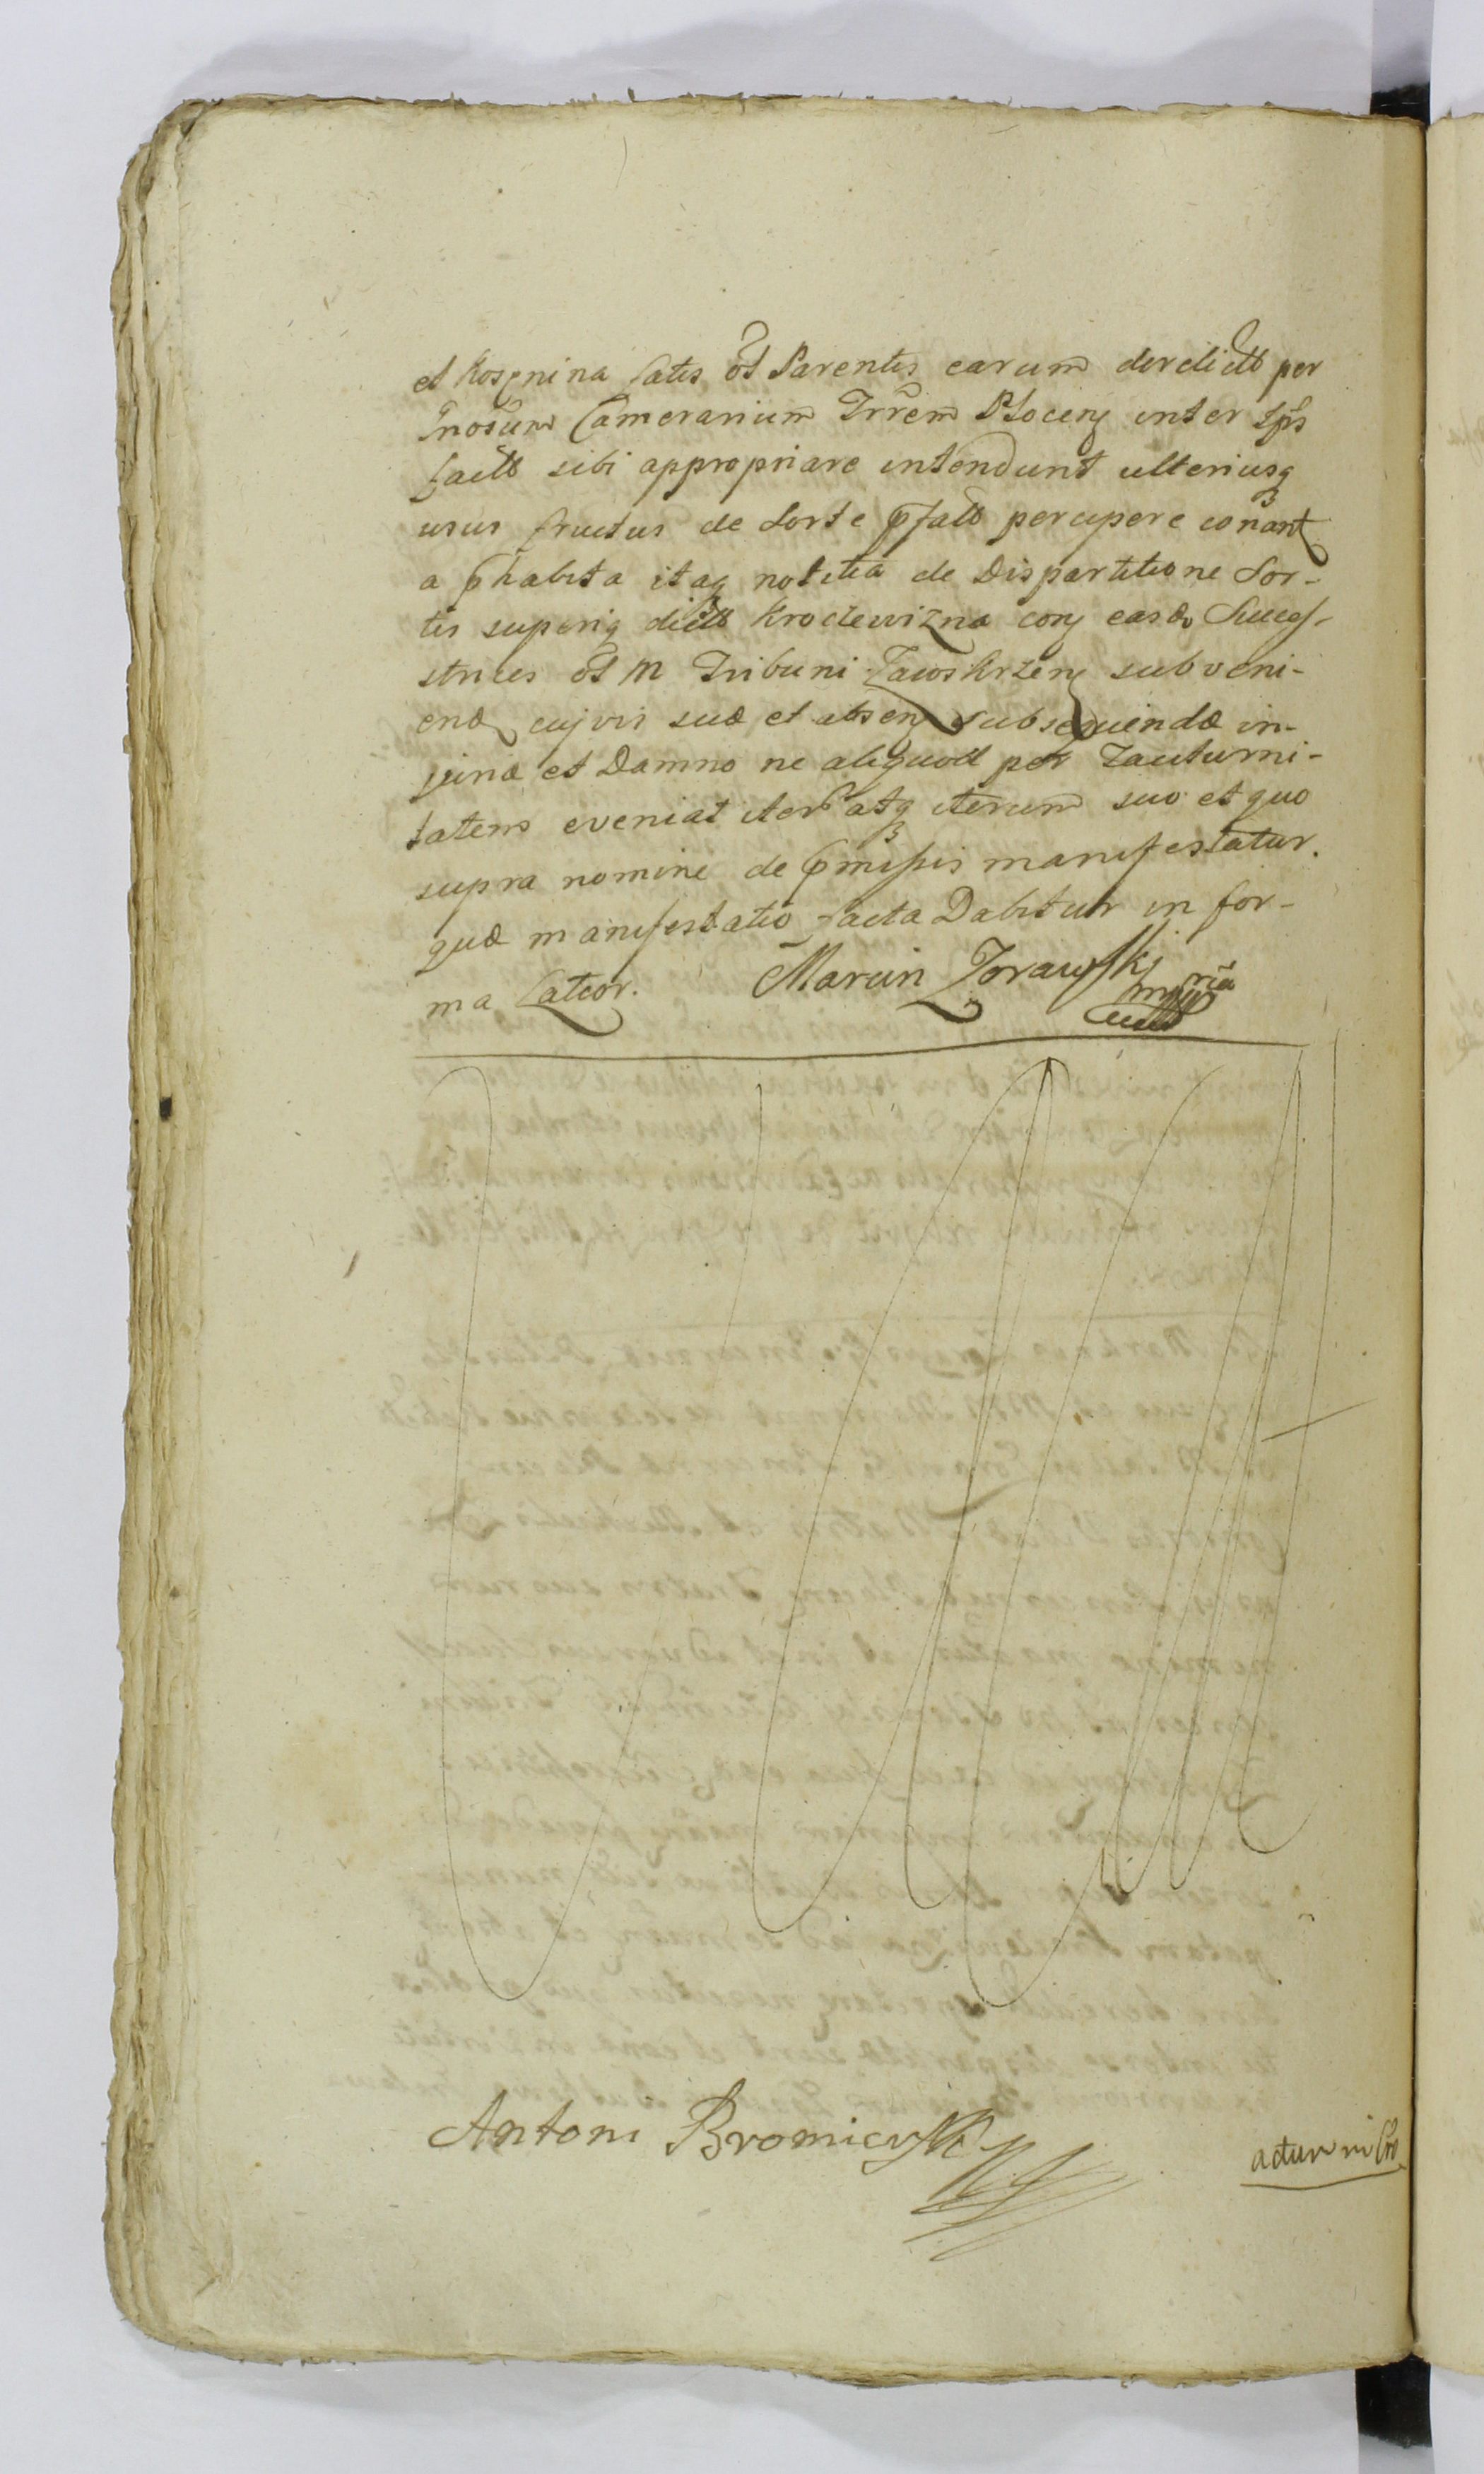 et Kosznina satis ot Parentis earum derelicto per
Gnosum Camerarium Trrem Plocen inter
facto sibi appropriare intendunt ulteriusq
usus fructus de Sorte pfato percipere conant
a phabita itaq notitia de Dispartitione Sor-
tis superiq dicto Kroclewizna eas Succes-
strices ot M Tribuni Zawskrzen subveni-
end cujvis suæ et absen subsequendæ in-
juriæ et Damno ne aliquod per taciturni-
tatem eveniat iter atq iterum suo et quo
supra nomine de pmissis manifestatur.
quæ manifestatio facta Dabitur in for-
ma Lator. Marcin Zorawski mpria
Antoni Bromierski
actum in